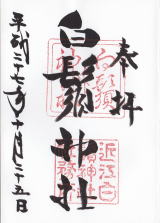 奉拝
白鬚神社
平成二十七年十月二十五日
白鬚
神社
近江白
鬚神社